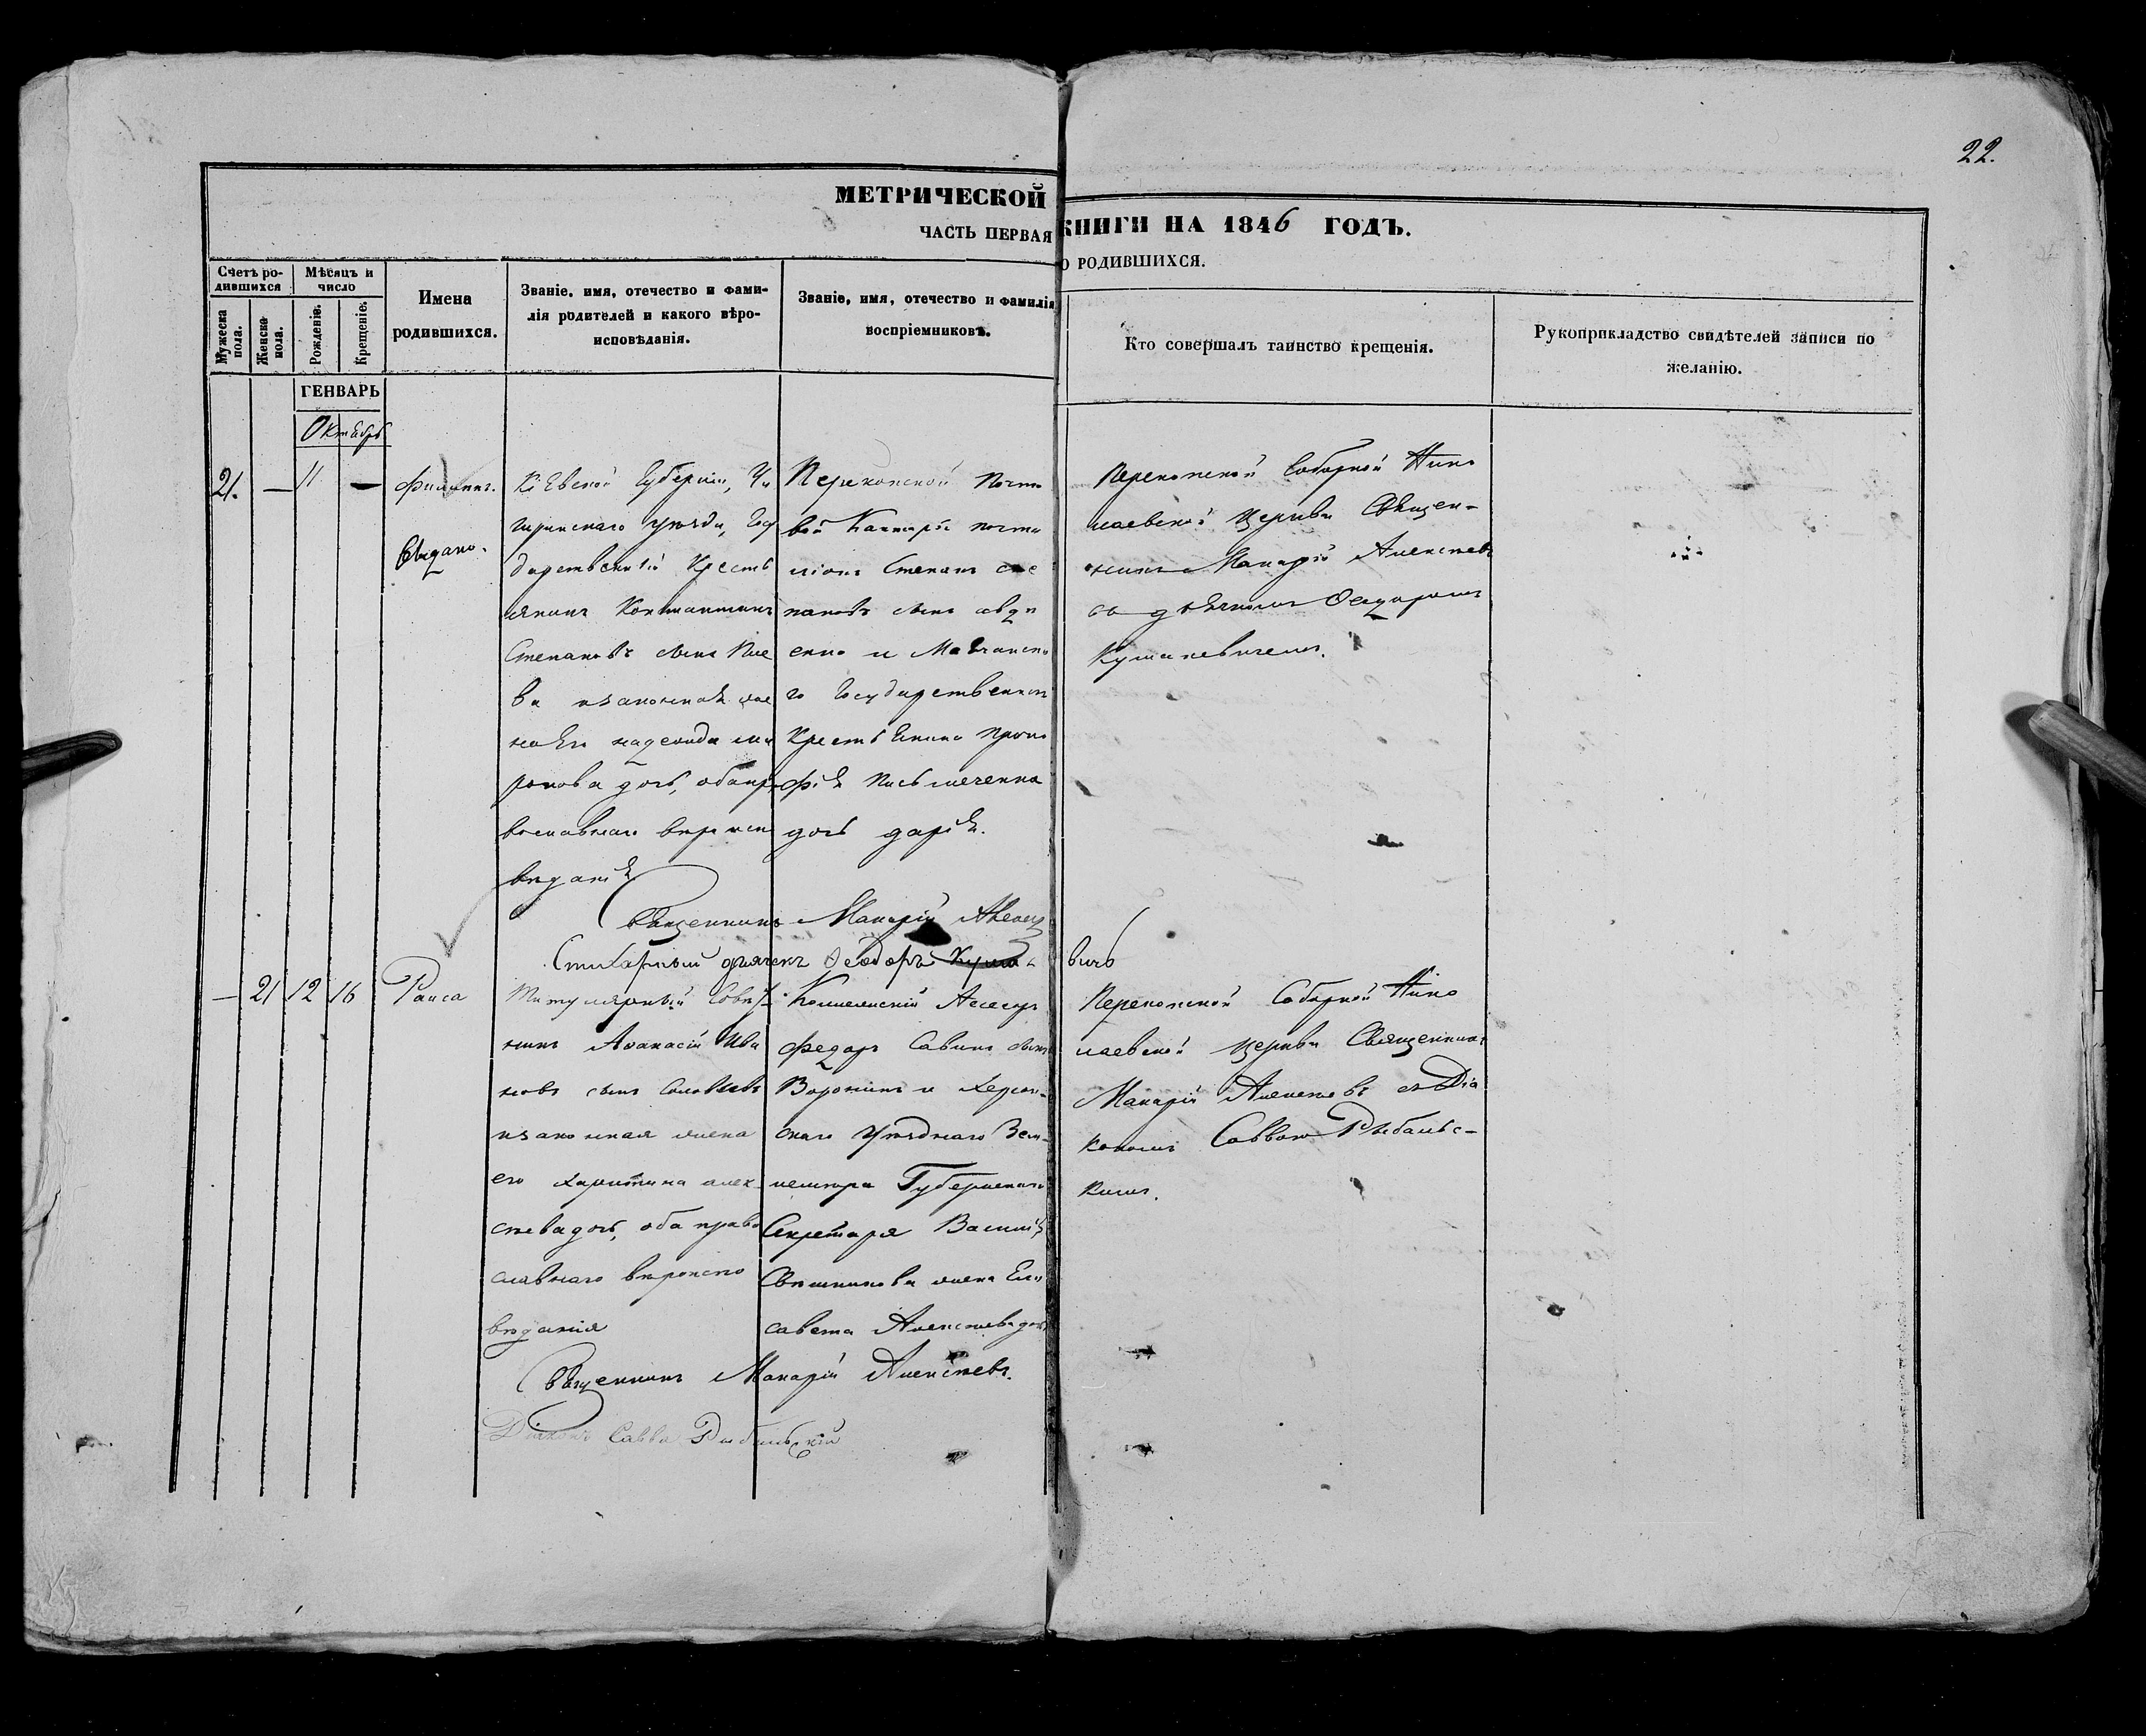 22.
МЕТРИЧЕСКОЙ КНИГИ НА 1846 ГОДЪ.
ЧАСТЬ ПЕРВАЯ О РОДИВШИХСЯ.
Счетъ ро-
дившихся
Мужеска пола.
Женска пола.
Мѣсяцъ и
число
Рожденіе.
Крещеніе.
Имена
родившихся.
Званіе, имя, отечество и фами-
лія родителей и какого вѣро-
исповѣданія.
Званіе, имя, отечество и фамилія
воспріемниковъ.
Кто совершалъ таинство крещенія.
Рукоприкладство свидѣтелей записи по
желанію.
ГЕНВАРЬ
Октябрь
21.
—
11
—
Филиппъ.
Выдано.
Кіевской Губерніи, Чи
гиринскаго уѣзда, Госу
дарственный Кресть
янинъ Константинъ
Степановъ сынъ
ва изаконная же
на его надежда ми
ронова дочь, оба пра
вославнаго вѣроиспо
вѣданія
Перекопской Почто
вой Канторы почта
ліонъ Степанъ Сте
пановъ сынъ авди
енко и
го Государственнаго
Крестьянина Проко
фія Письмеченка
дочь дарія.
Перекопской Соборной Нико
лаевской Церкви Священ-
никъ Макарій Алексѣевъ
съ дьячкомъ Ѳедоромъ
Кушакевичемъ.
Священникъ Макарій
Стихарный дьячекъ Ѳеодоръ
вичъ
—
21
12
16
Раиса
Титулярный Совѣт
никъ Аѳанасій Ива
новъ сынъ Соловьевъ
изаконная жена
его Харитина алек
сѣева дочь, оба право
славнаго вѣроиспо
вѣданія
Коллежскій Асессоръ
Федоръ Савинъ сынъ
Воронинъ и Херсон-
скаго Уѣзднаго Зем-
лемѣра Губернскаго
Секретаря Василія
жена Ели
савета Алексѣева дочь
Перекопской Соборной Нико
лаевской Церкви Священникъ
Макарій Алексѣевъ съ Діа
кономъ Саввою Рыбальс-
кимъ.
Священникъ Макарій Алексѣевъ.
Діаконъ Савва Рыбальскій